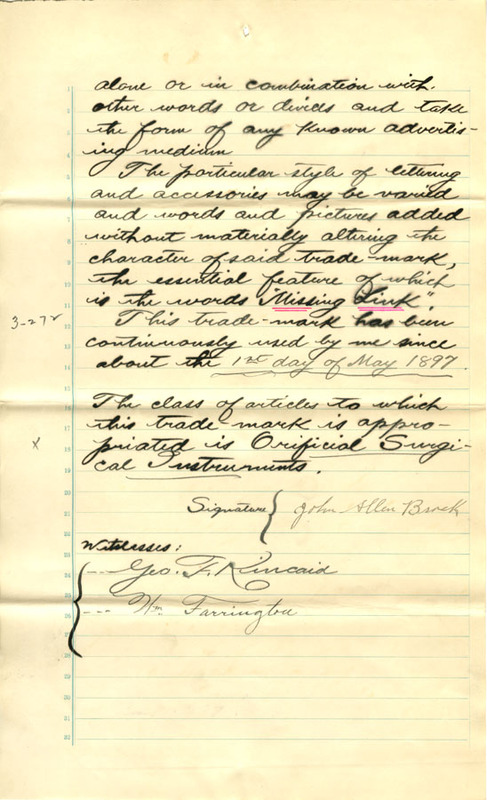 alone or in combination with
other words or divices and take
the form of any known advertis-
ing medium
The particular style of lettering
and accessories may be varied
and words and pictures added
without materially altering the
character of said trade-mark,
the essential feature of which
is the words "Missing Link".
3-272
This trade-mark has been
continuously used by me since
about the 1st day of May 1897.
The class of articles to which
this trade-mark is appro-
x
priated is Orificial Surgi-
cal Instruments.
Signature { John Allen Brock
Witnesses:
Geo. F. Kincaid
Wm. Farrington